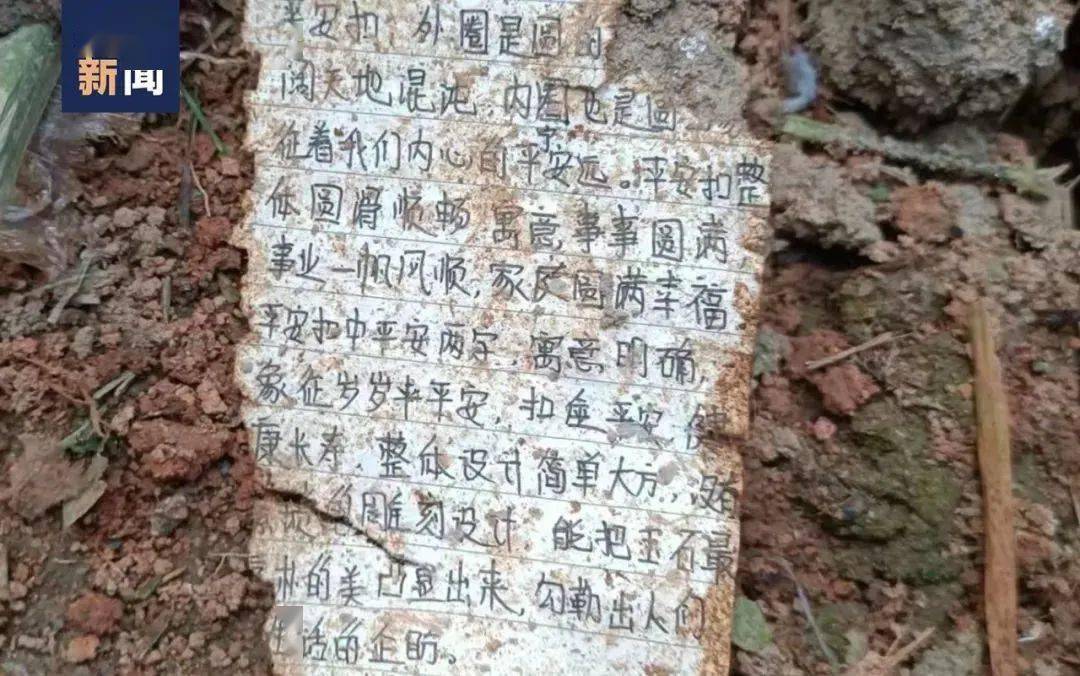 新闻
平安扣 外圈是圆
阔天地混沌,内圈也是圆
征着我们内心的平安宁远。平安扣整
体圆滑顺畅 寓意,事事圆满
事业一帆风顺,家庭圆满幸福
平安扣中平安两字,寓意明确,
象征岁岁年平安,扣座平安 健
康长寿,整体设计简单大方,,没有
雕刻设计,能把玉石最
的美凸显出来,勾勒出人们
生活的企盼。